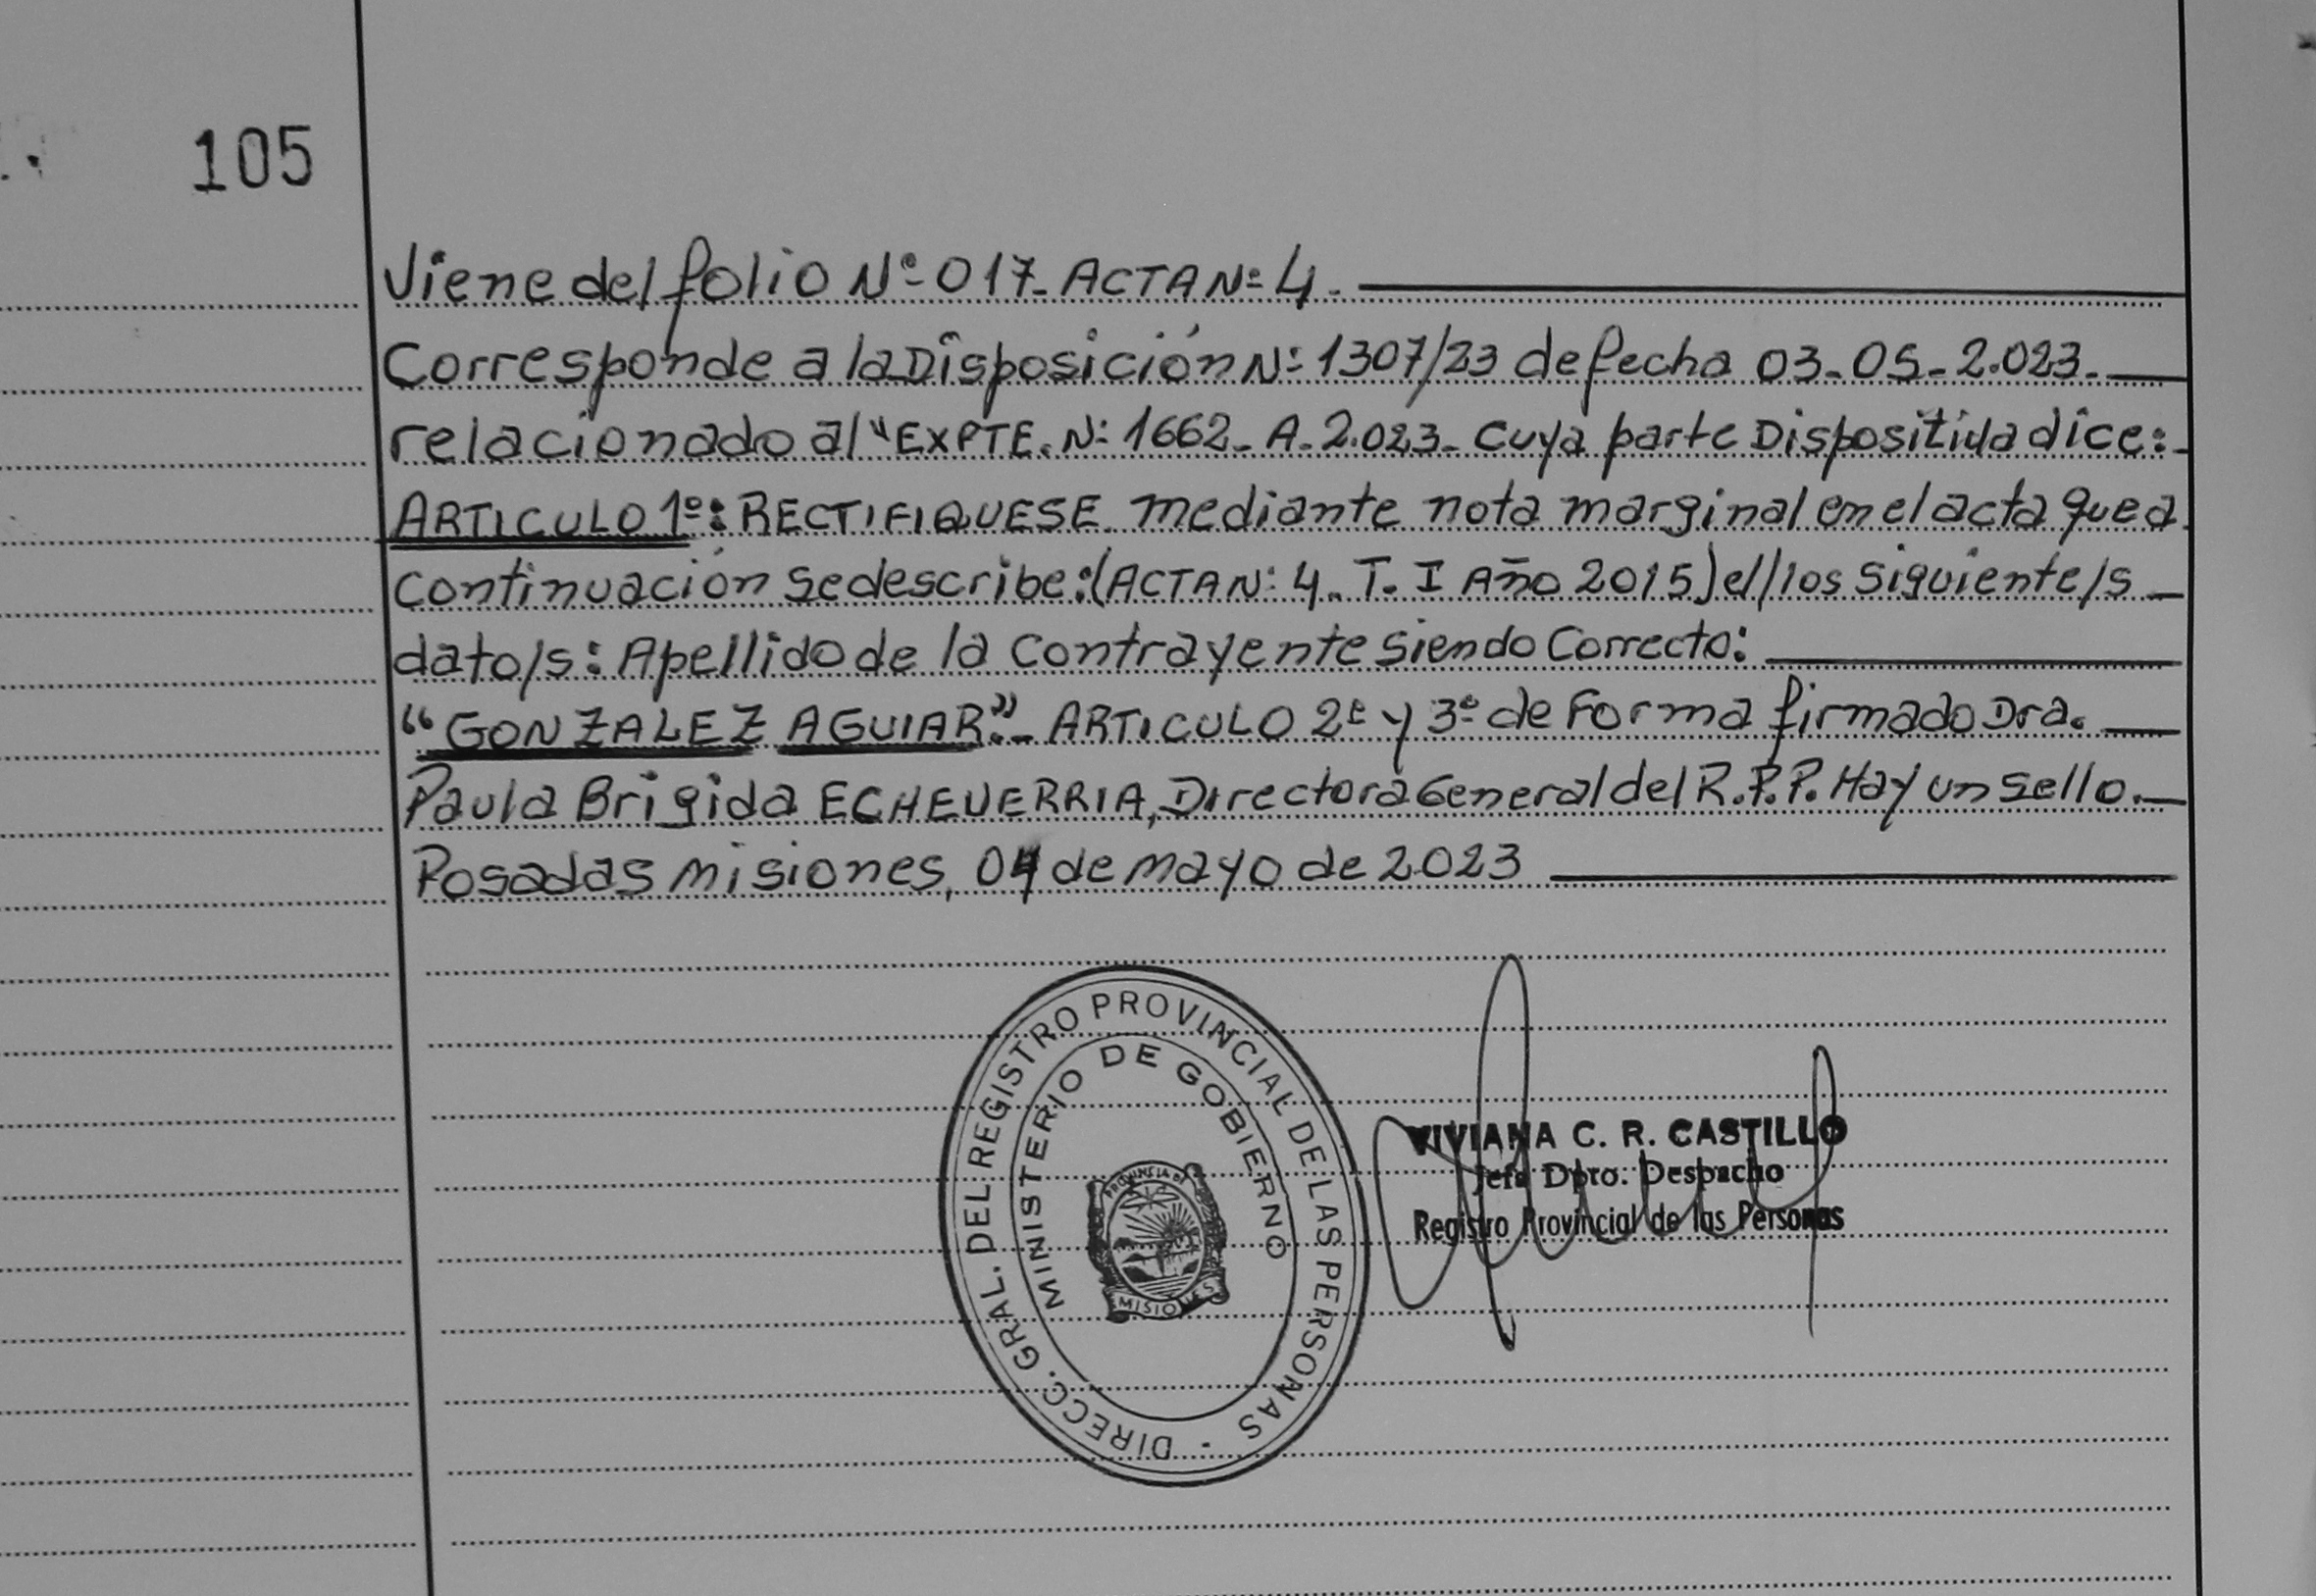 105
Viene del folio Nº 017- ACTA Nº 4.
Corresponde a la Disposición Nº 1307/23 de fecha 03-05-2.023.
relacionado al "EXPTE. Nº 1662- A- 2.023- Cuya parte Dispositiva dice:
ARTICULO 1º: RECTIFIQUESE mediante nota marginal en el acta que a
continuación se describe: (ACTA Nº 4. T. I Año 2015) el/los siguiente/s
dato/s: Apellido de la Contrayente siendo Correcto:
"GONZALEZ AGUIAR".- ARTICULO 2º y 3º de Forma firmado Dra.
Paula Brigida ECHEVERRIA, Directora General del R.P.P. Hay un sello.
Posadas Misiones, 04 de mayo de 2023
DIRECC. GRAL. DEL REGISTRO PROVINCIAL DE LAS PERSONAS -
MINISTERIO DE GOBIERNO
PROVINCIA DE
MISIONES
VIVIANA C. R. CASTILLO
Jefa Dpto. Despacho
Registro Provincial de las Personas